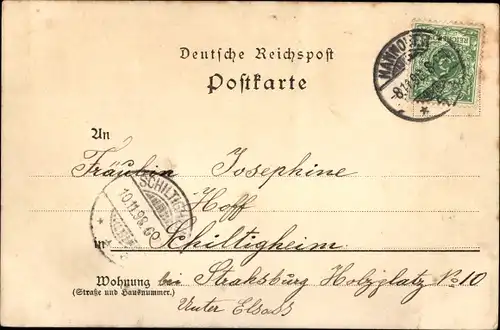 Deutsche Reichspost
Postkarte
An
Fräulein Josephine
Hoff
in Schiltigheim
Wohnung bei Straksburg Holzplatz No 10
(Straße und Hausnummer.)
Unter Elsaß
SCHILTIGH
10.11.98